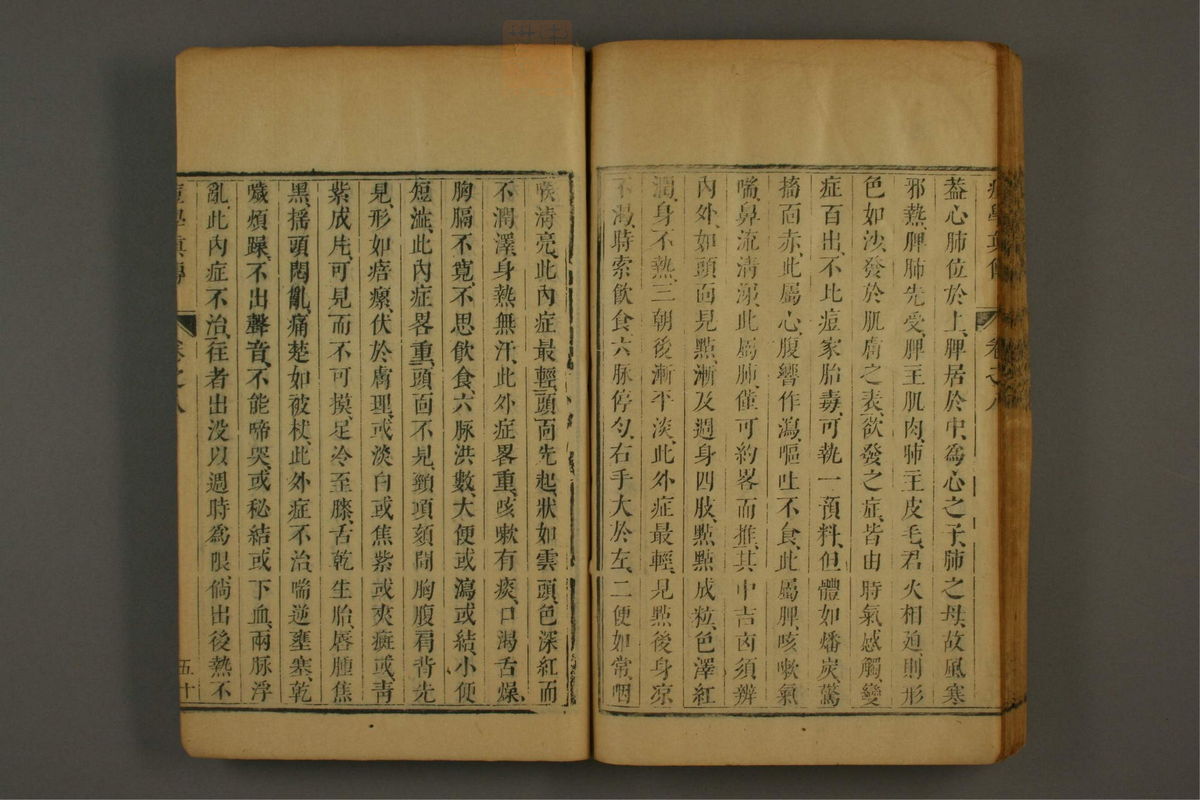 蓋心肺位於上脾居於中爲心之子肺之母故風寒
邪熱脾肺先受脾主肌肉肺主皮毛君火相迫則形
色如沙發於肌膚之表欲發之症皆由時氣感觸變
症百出不比痘家胎毒可執一預料但體如燔炭驚
搐面赤此屬心腹響作瀉嘔吐不食此屬脾咳嗽氣
喘鼻流清涕此屬肺僅可約畧而推其中吉凶須辨
內外如頭面見點漸及週身四肢點點成粒色澤紅
潤身不熱三朝後漸平淡此外症最輕見點後身凉
不渴時索飲食六脉停勻右手大於左二便如常咽
喉淸亮此內症最輕頭面先起狀如雲頭色深紅而
不潤澤身熱無汗此外症畧重咳嗽有痰口渴舌燥
胸膈不寛不思飲食六脉洪數大便或瀉或結小便
短澁此內症畧重頭面不見頸項頦間胸腹肩背先
見形如㾦瘰伏於膚理或淡白或焦紫或夾癍或靑
紫成片可見而不可摸足冷至膝舌乾生胎唇腫焦
黑搖頭悶亂痛楚如被杖此外症不治喘逆壅塞乾
噦煩躁不出聲音不能啼哭或秘結或下血兩脉浮
亂此內症不治往者出没以週時爲限倘出後熱不
痘學真傳 卷之八 五十